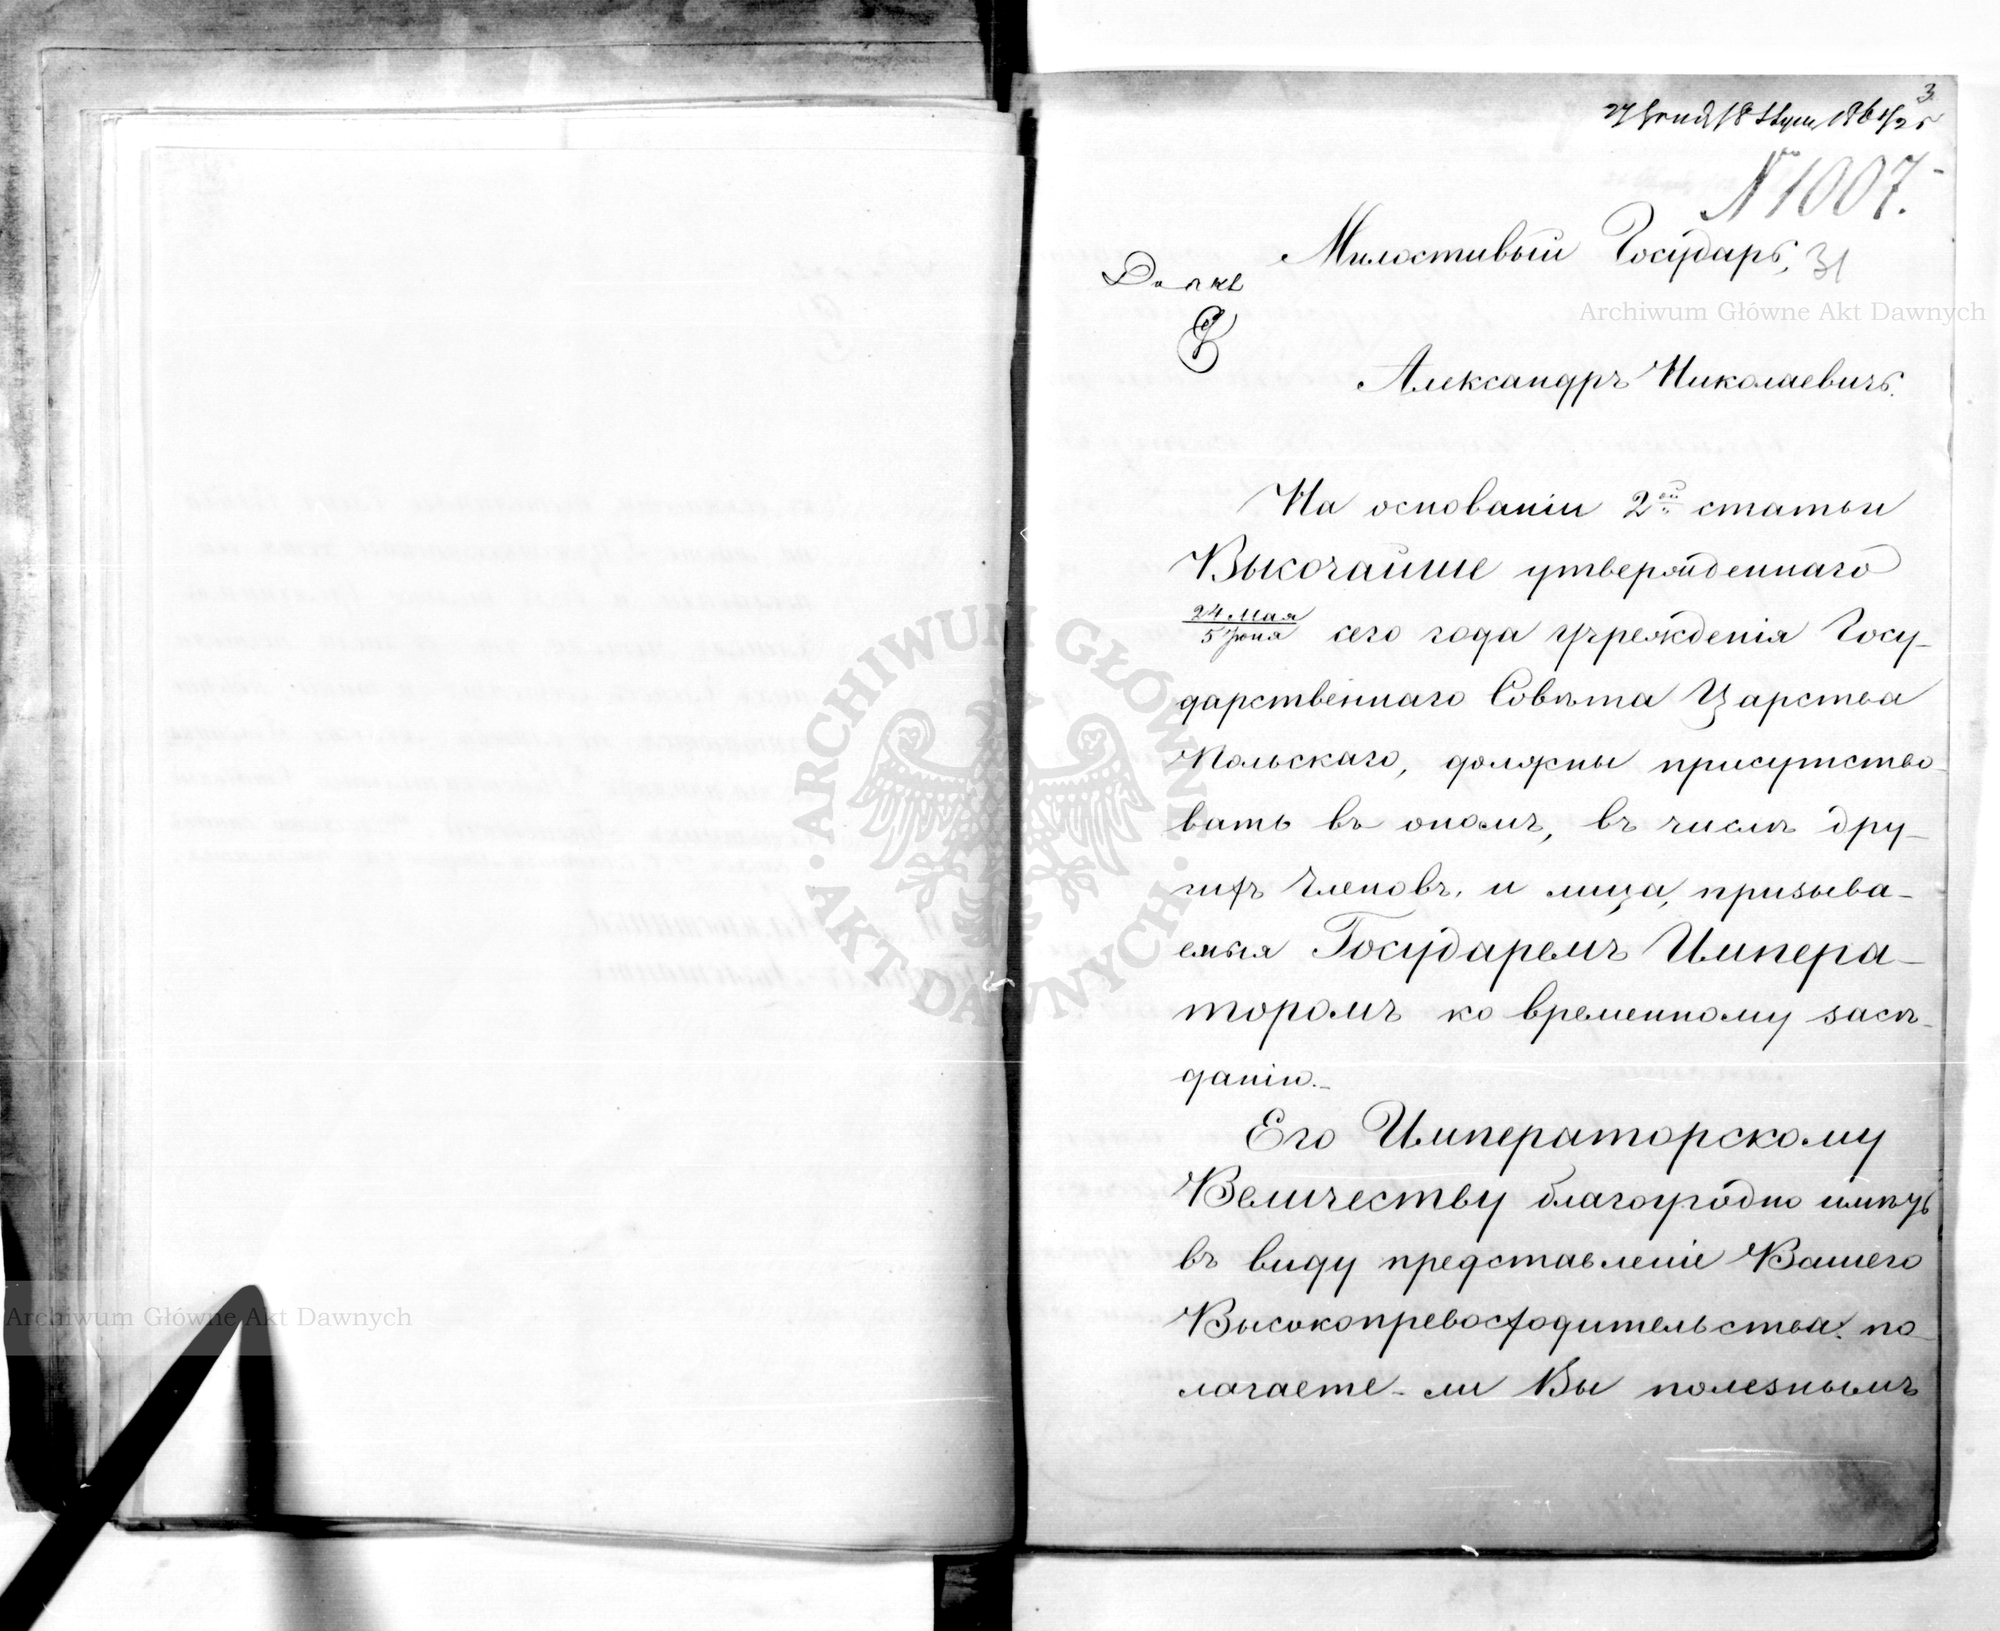 3
№ 1007.
Милостивый Государь,
31
Александръ Николаевичъ.
На основаніи 2ой статьи
Высочайше утвержденнаго
24 Мая
5 Іюня сего года учрежденія Госу-
дарственнаго Совѣта Царства
Польскаго, должны присутство-
вать въ ономъ, въ числѣ дру-
гихъ Членовъ, и лица, призыва-
емыя Государемъ Импера-
торомъ ко временному засѣ-
данію.
Его Императорскому
Величеству благоугодно имѣть
въ виду представленіе Вашего
Высокопревосходительства: по-
лагаете-ли Вы полезнымъ
Archiwum Główne Akt Dawnych
Archiwum Główne Akt Dawnych
ARCHIWUM GŁÓWNE · AKT DAWNYCH ·